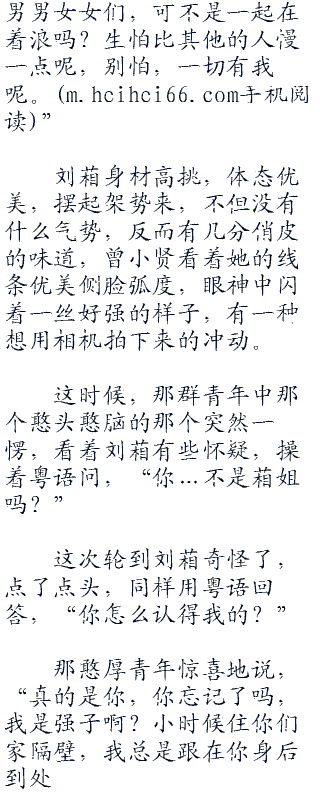 男男女女们，可不是一起在
着浪吗？生怕比其他的人慢
一点呢，别怕，一切有我
呢。(m.hcihci66.com手机阅
读)”
刘葙身材高挑，体态优
美，摆起架势来，不但没有
什么气势，反而有几分俏皮
的味道，曾小贤看着她的线
条优美侧脸弧度，眼神中闪
着一丝好强的样子，有一种
想用相机拍下来的冲动。
这时候，那群青年中那
个憨头憨脑的那个突然一
愣，看着刘葙有些怀疑，操
着粤语问，“你…不是葙姐
吗？”
这次轮到刘葙奇怪了，
点了点头，同样用粤语回
答，“你怎么认得我的？”
那憨厚青年惊喜地说，
“真的是你，你忘记了吗，
我是强子啊？小时候住你们
家隔壁，我总是跟在你身后
到处